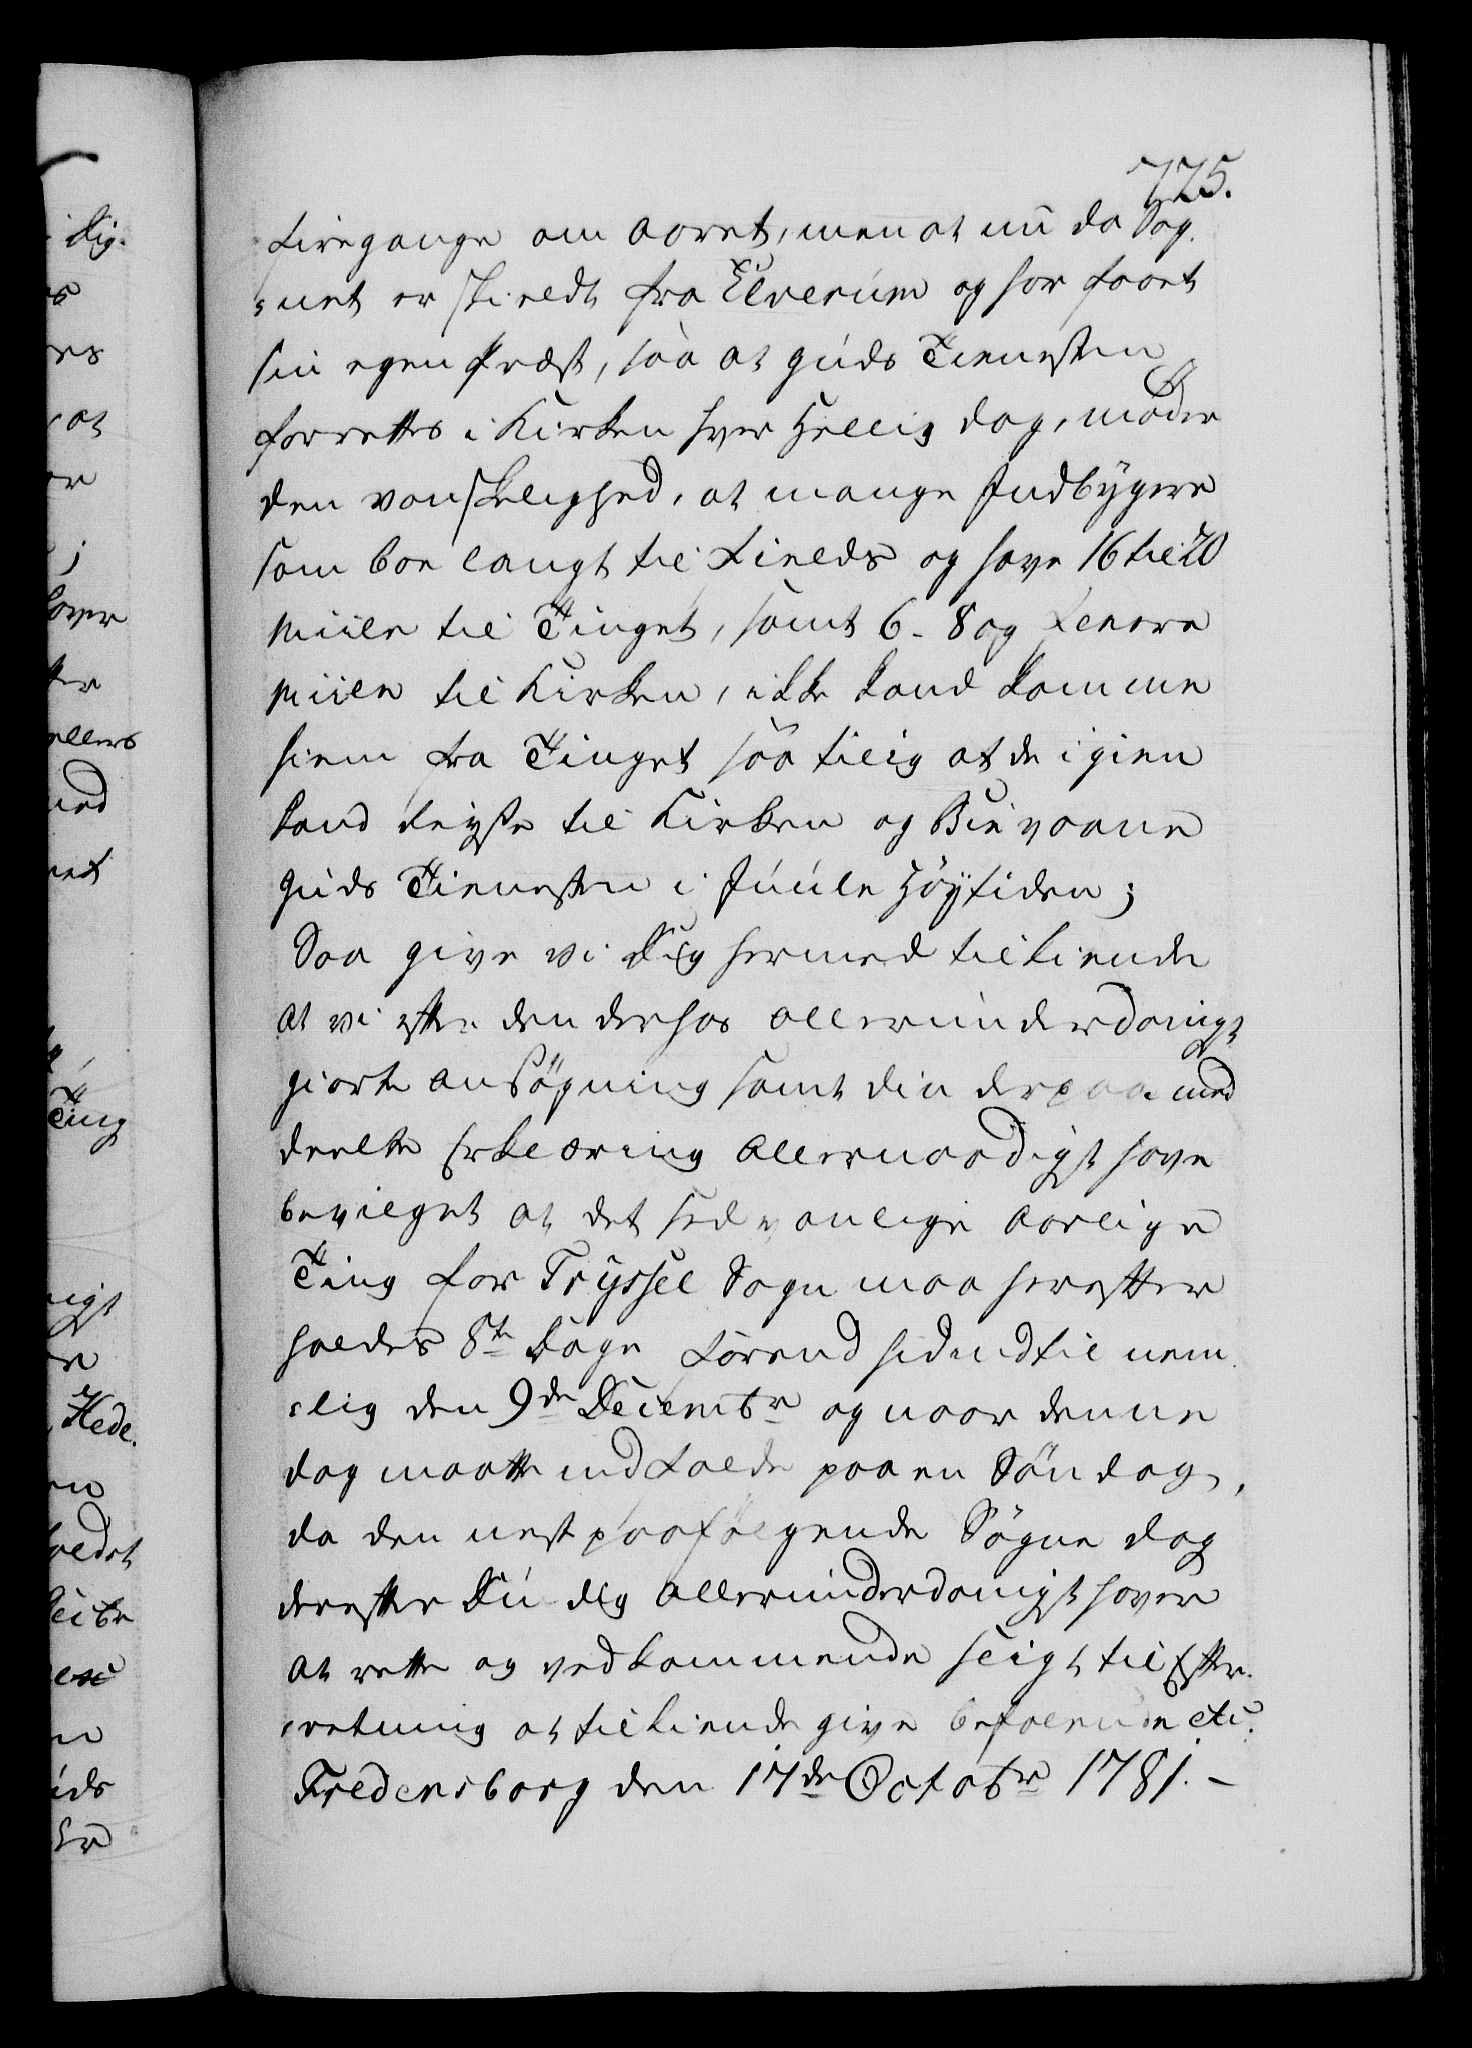 725.
firegange om aaret, men at nu da Sog-
-net er skieldt fra Elverum og har faaet
sin egen Præst, saa at Guds Tienesten
forrettes i Kirken hver Hellig dag, møder
den vanskelighed, at mange Indbygere
som boe langt til Fields og have 16 til 20
Miile til Tinget, samt 6- 8 og fleere
Miile til Kirken, ikke kand komme
hiem fra Tinget saa tilig at de igien
kand reyse til Kirken og Bievaane
Guds Tienesten i Juule Høytiden;
Saa give vi Dig hermed tilkiende
at vi efter den derhos allerunderdanigst
giorte ansøgning samt din derpaa med
deelte Erklæring allernaadigst have
bevilget at det sedvanlige aarlige
Ting for Tryssel Sogn maa herefter
holdes 8te Dage førend hidindtil nem-
-lig den 9de Decembr og naar denne
dag maatte indfalde paa en Søndag,
da den nest paafølgende Søgne dag
derefter Du dig allerunderdanigst haver
at rette og vedkommende sligt til Efter-
-retning at tilkiende give befalende etc.
Fredensborg den 17de Octobr 1781. -
Dig.
at
j
haver
ellers
Ting
Hede-